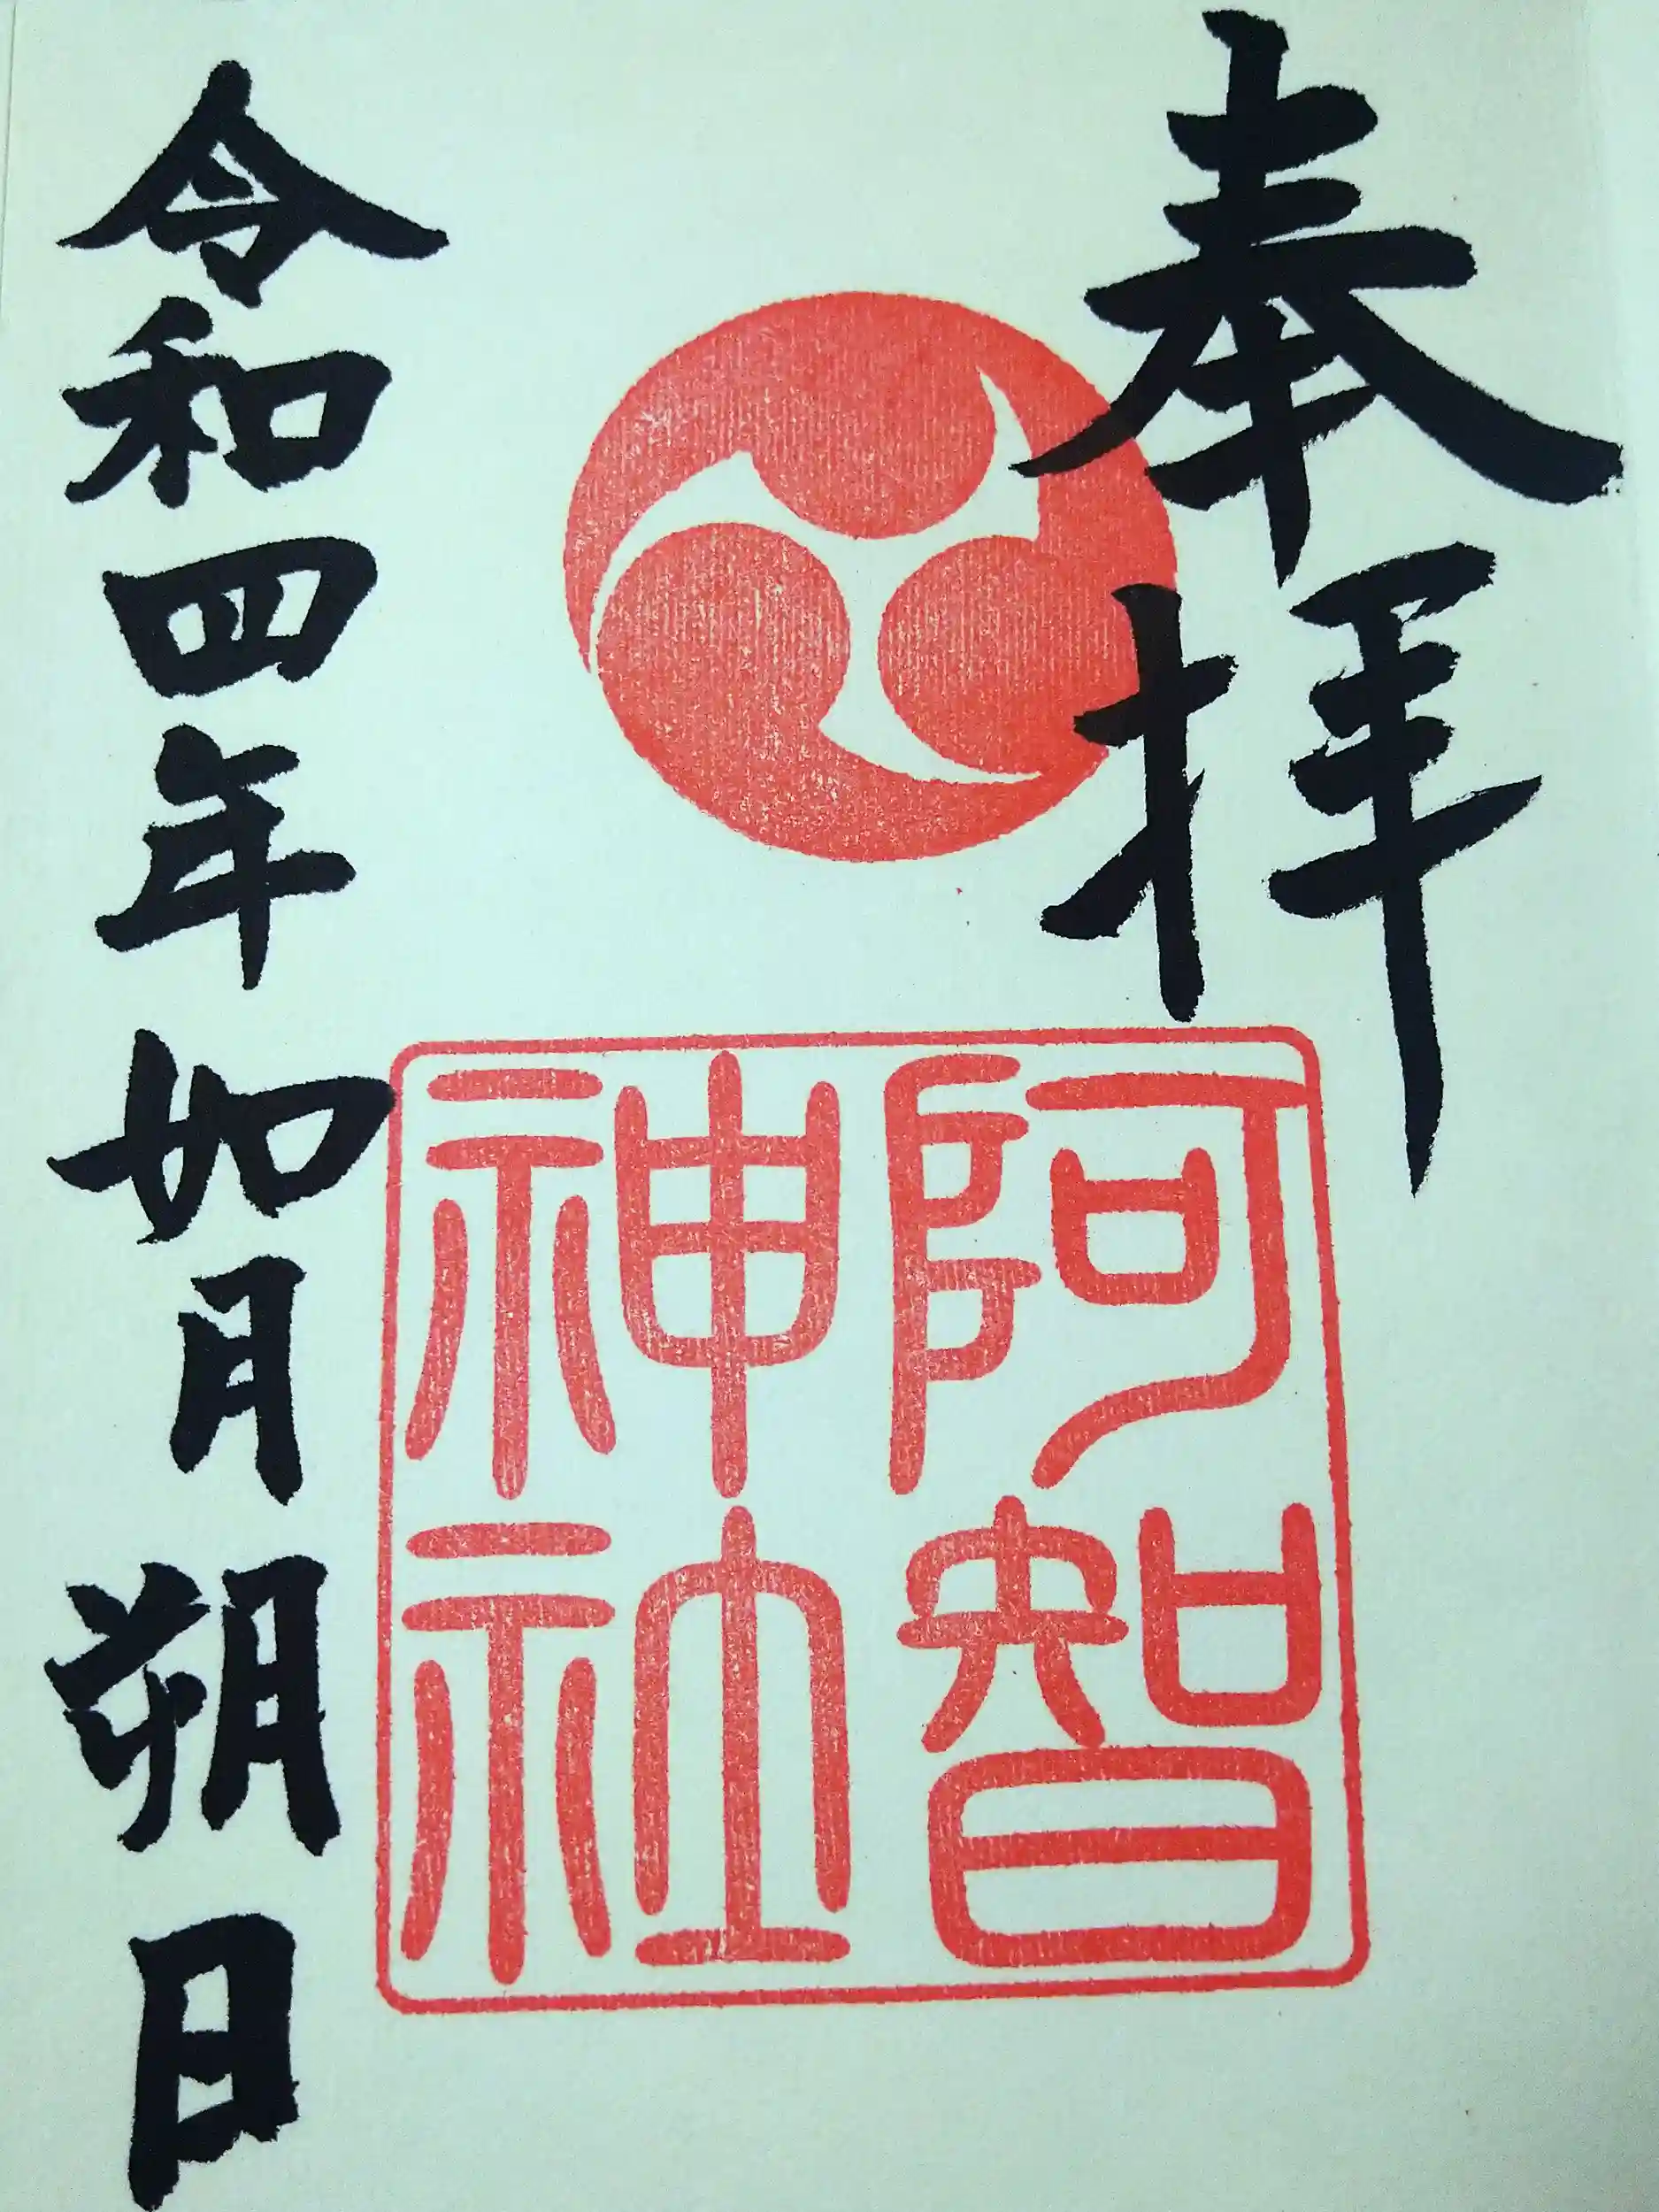 奉拝
阿智
神社
令和四年如月朔日